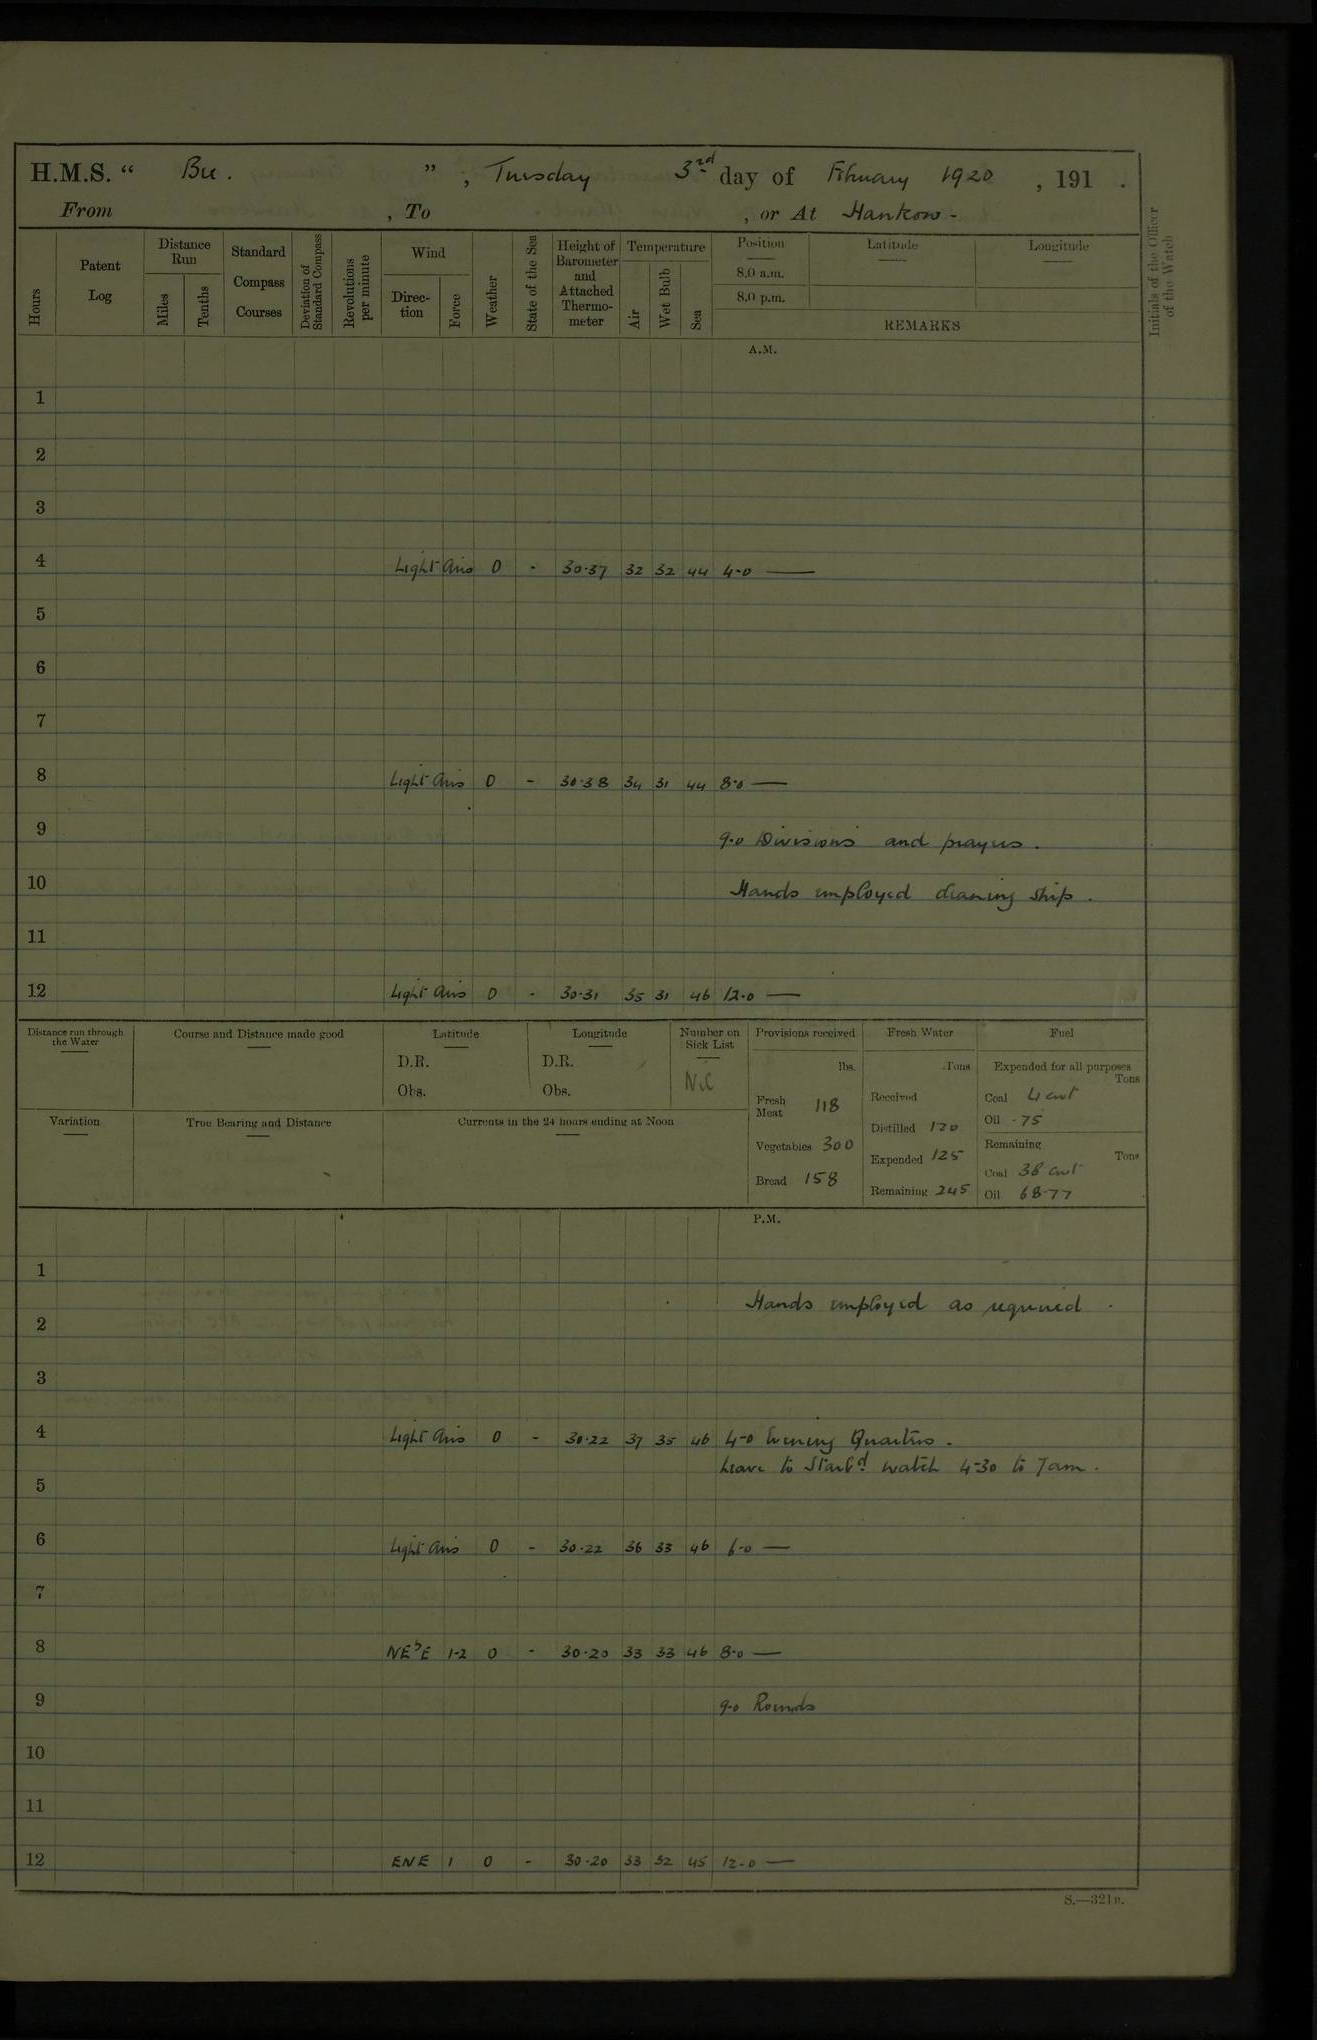 H.M.S. “ Bee. ” , Tuesday 3rd day of February 1920 , 191 .
From , To , or At Hankow -
Hours
Patent Log
Distance Run
Miles
Tenths
Standard Compass Courses
Deviation of Standard Compass
Revolutions per minute
Wind
Direc-tion
Force
Weather
State of the Sea
Height of Barometer and Attached Thermo-meter
Temperature
Air
Wet Bulb
Sea
Position
8.0 a.m.
8.0 p.m.
Latitude
Longitude
REMARKS
Initials of the Officer of the Watch
A.M.
1
2
3
4 Light Airs 0 - 30.37 32 32 44 4.0 —
5
6
7
8 Light Airs 0 - 30.38 34 31 44 8.0 —
9 9.0 Divisions and prayers.
10 Hands employed cleaning ship.
11
12 Light Airs 0 - 30.31 35 31 46 12.0 —
Distance run through the Water
Course and Distance made good
Latitude
D.R.
Obs.
Longitude
D.R.
Obs.
Number on Sick List
Nil
Variation
True Bearing and Distance
Currents in the 24 hours ending at Noon
Provisions received
lbs.
Fresh Meat 118
Vegetables 300
Bread 158
Fresh Water
Tons
Received
Distilled 120
Expended 125
Remaining 245
Fuel
Expended for all purposes
Tons
Coal 4 cwt
Oil .75
Remaining
Tons
Coal 38 cwt
Oil 68.77
P.M.
1
Hands employed as required.
2
3
4 Light Airs 0 - 30.22 37 35 46 4.0 Evening Quarters.
Leave to Starbd watch 4.30 to 7am.
5
6 Light Airs 0 - 30.22 36 33 46 6.0 —
7
8 NEbE 1-2 0 - 30.20 33 33 46 8.0 —
9 9.0 Rounds
10
11
12 ENE 1 0 - 30.20 33 32 45 12.0 —
S.—321B.